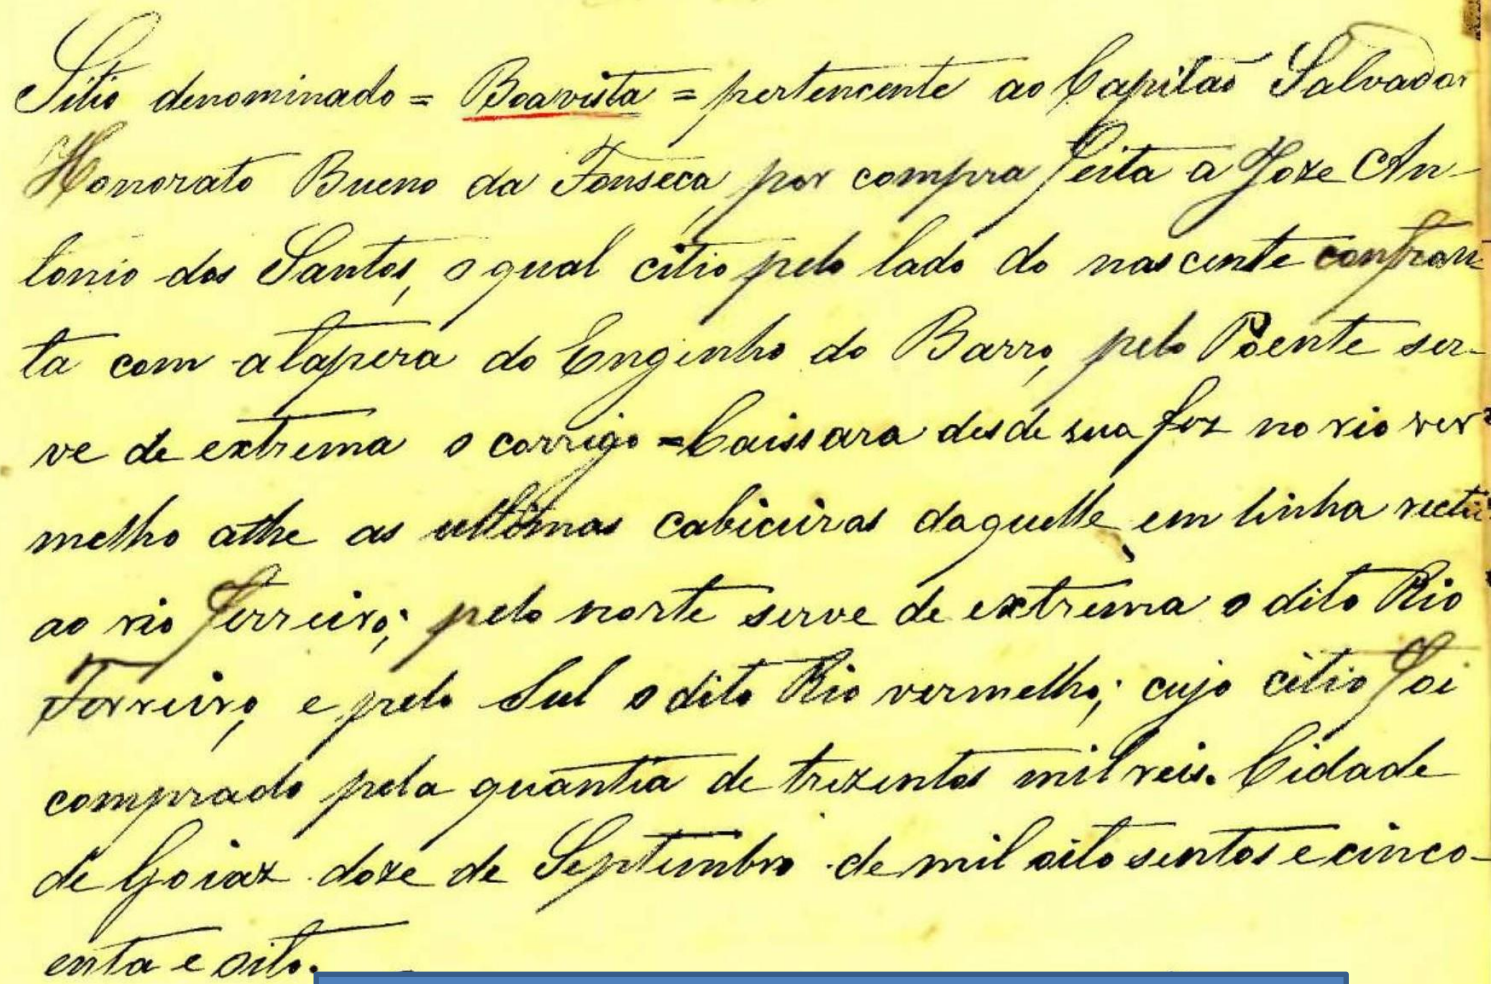 Sitio denominado = Boavista = pertencente ao Capitão Salvador
Honorato Bueno da Fonseca, por compra feita a Joze An-
tonio dos Santos, o qual citio pelo lado do nascente confron-
ta com a tapera do Engenho do Barro, pelo Poente ser-
ve de extrema o corrigo = Caissara desde sua foz no rio ver-
melho athe as ultimas cabiceiras daquelle em linha recta
ao rio ferreiro; pelo norte serve de extrema o dito Rio
Ferreiro, e pelo Sul o dito Rio vermelho; cujo citio foi
comprado pela quantia de trezentos mil reis. Cidade
de Goiaz doze de Septembro de mil oito sentos e cinco-
enta e oito.